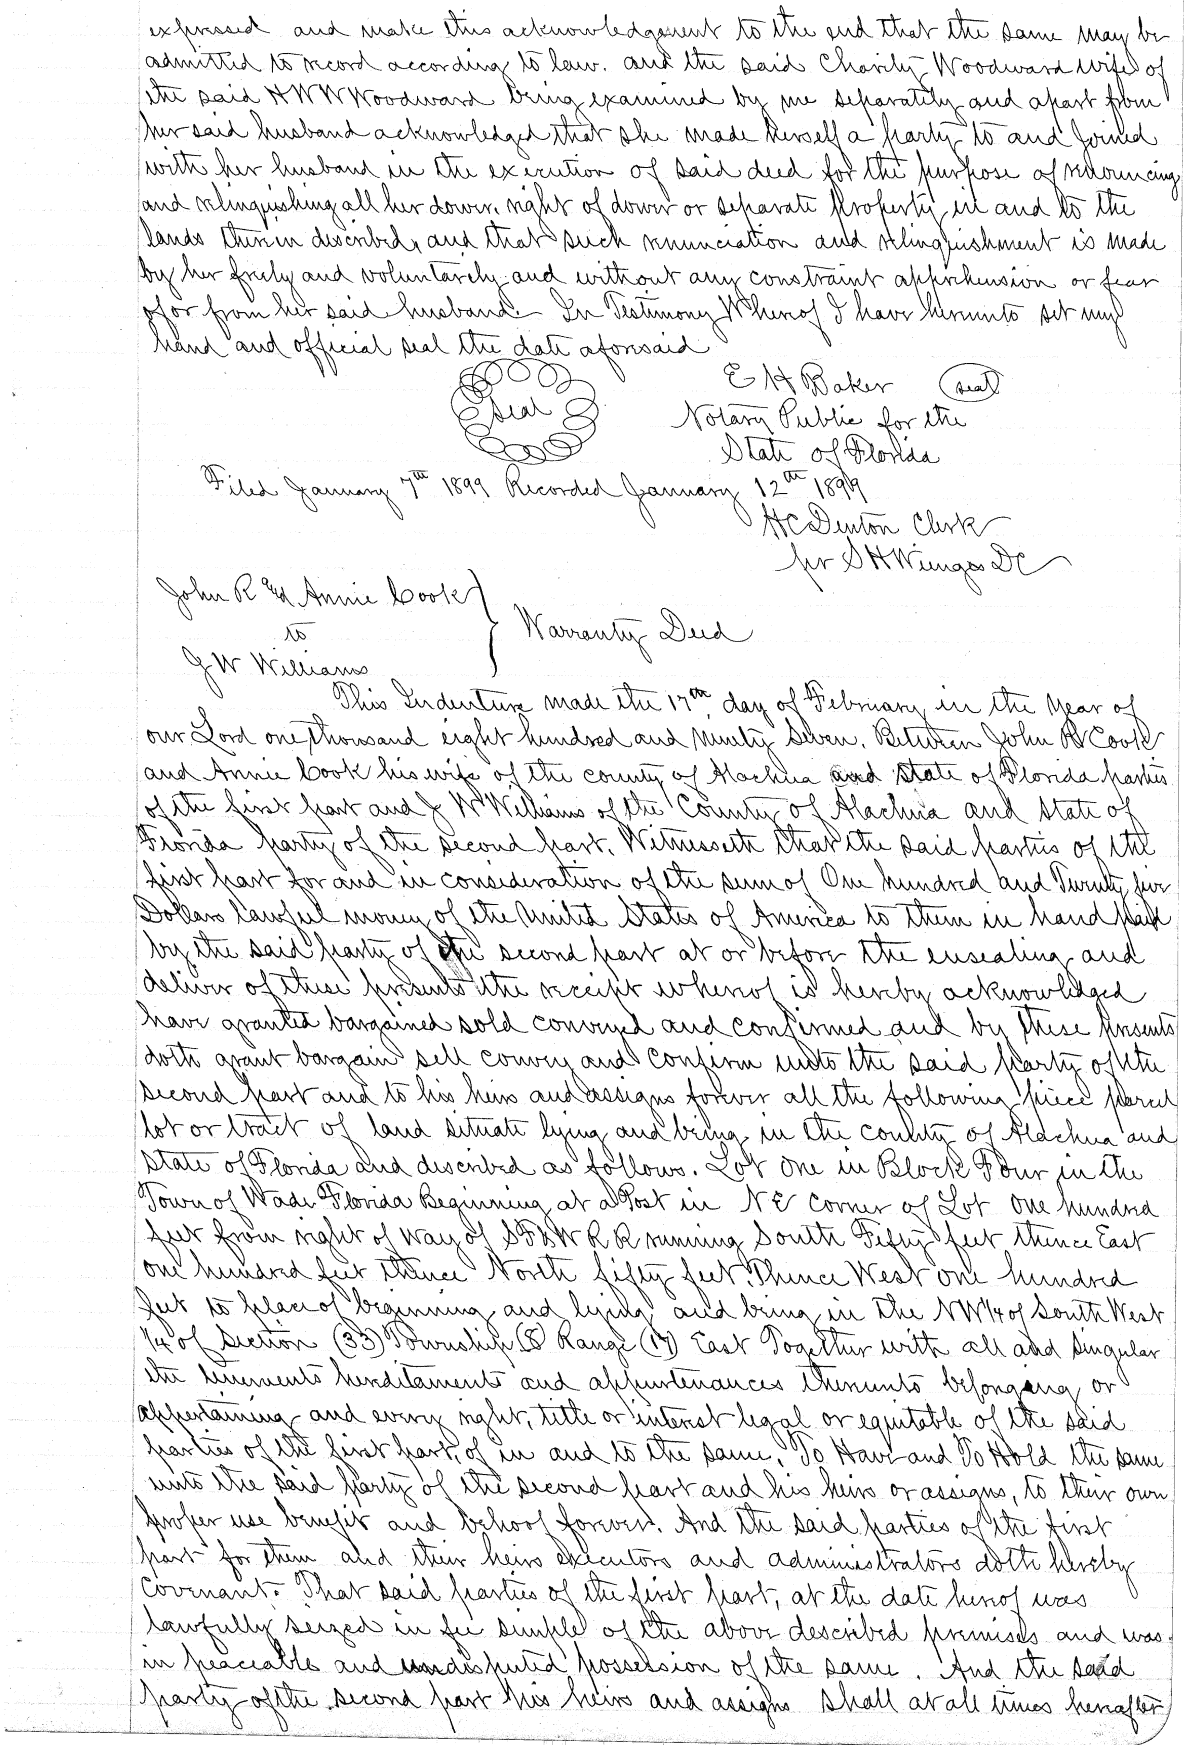 expressed and make this acknowledgement to the end that the same may be
admitted to record according to law. and the said Charity Woodward wife of
the said H W W Woodward being examined by me separately and apart from
her said husband acknowledged that she made herself a party to and Joined
with her husband in the execution of said deed for the purpose of renouncing
and relinquishing all her dower, right of dower or separate Property in and to the
lands therein described, and that such renunciation and relinquishment is made
by her freely and voluntarely and without any constraint apprehension or fear
of or from her said husband. In Testimony Whereof I have hereunto set my
hand and official seal the date aforesaid
Seal
E H Baker (seal)
Notary Public for the
State of Florida
Filed January 7th 1899 Recorded January 12th 1899
H C Denton Clerk
per S H Wienges DC
John R Ed Annie Cook
to
G W Williams
Warranty Deed
This Indenture made the 17th day of February in the Year of
our Lord one thousand eight hundred and Ninety Seven. Between John R Cook
and Annie Cook his wife of the county of Alachua and State of Florida parties
of the first part and J W Williams of the County of Alachua and State of
Florida party of the second part. Witnesseth that the said parties of the
first part for and in consideration of the sum of One hundred and Twenty five
Dollars lawful money of the United States of America to them in hand paid
by the said party of the second part at or before the ensealing and
deliver of these presents the receipt whereof is hereby acknowledged
have granted bargained sold conveyed and confirmed and by these presents
doth grant bargain sell convey and confirm unto the said party of the
second part and to his heirs and assigns forever all the following piece parcel
lot or tract of land situate lying and being in the county of Alachua and
State of Florida and described as follows. Lot One in Block Four in the
Town of Wade Florida Beginning at a Post in N E corner of Lot One hundred
feet from right of Way of S F & W R R running South Fifty feet thence East
one hundred feet thence North fifty feet. Thence West one hundred
feet to place of beginning and lying and being in the NW 1/4 of South West
1/4 of Section (33) Township (8) Range (17) East Together with all and Singular
the tenements hereditaments and appurtenances thereunto belonging or
appertaining and every right, title or interest legal or equitable of the said
parties of the first part, of in and to the same. To Have and To Hold the same
unto the said party of the second part and his heirs or assigns, to their own
proper use benefit and behoof forever. And the said parties of the first
part for them and their heirs executors and administrators doth hereby
Covenant. That said parties of the first part, at the date hereof was
lawfully seized in fee simple of the above described premises and was
in peaceable and undisputed possession of the same. And the said
party of the second part his heirs and assigns shall at all times hereafter